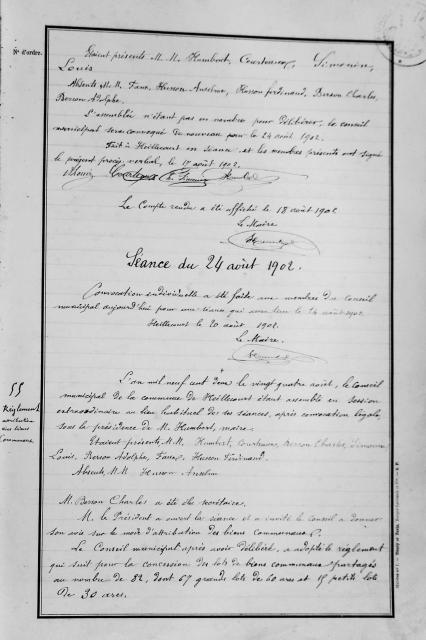 N° d'ordre.
Etaient présents M.M. Humbert, Courteaux, Simonin,
Louis
Absents M.M. Faux, Husson Anselme, Husson Ferdinand, Berson Charles,
Berson Adolphe.
L'assemblée n'étant pas en nombre pour délibérer, le conseil
municipal sera convoqué de nouveau pour le 24 août 1902.
Fait à Heillecourt en séance, et les membres présents ont signé
le présent procès-verbal, le 17 août 1902.
Le Compte rendu a été affiché le 18 août 1902
Le Maire
Séance du 24 août 1902.
Convocation individuelle a été faite aux membres du Conseil
municipal aujourd'hui pour une séance qui aura lieu le 24 août 1902
Heillecourt le 20 août 1902.
Le Maire.
L'an mil neuf cent deux le vingt quatre août, le conseil
municipal de la commune de Heillecourt étant assemblé en session
extraordinaire au lieu habituel de ses séances, après convocation légale
sous la présidence de M. Humbert, maire.
55
Règlement
attribution
des biens
Communaux
Etaient présents M.M. Humbert, Courteaux, Berson Charles, Simonin
Louis, Berson Adolphe, Faux, Husson Ferdinand.
Absents M.M. Husson Anselme
M. Berson Charles a été élu secrétaire.
M. le Président a ouvert la séance et a invité le conseil à donner
son avis sur le mode d'attribution des biens communaux.
Le Conseil municipal après avoir délibéré, a adopté le règlement
qui suit pour la concession des lots de biens communaux partagés
au nombre de 82, dont 67 grands lots de 60 ares et 15 petits lots
de 30 ares.